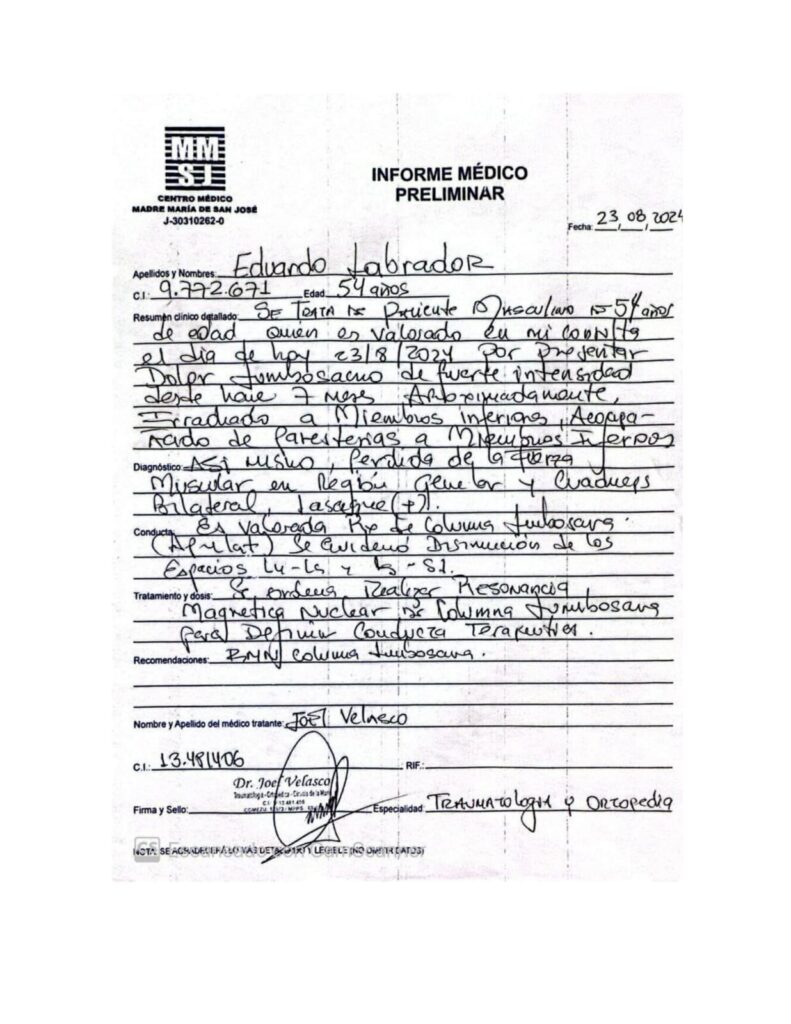 MM
SJ
CENTRO MÉDICO
MADRE MARÍA DE SAN JOSÉ
J-30310262-0
INFORME MÉDICO
PRELIMINAR
Fecha: 23 08 2024
Apellidos y Nombres: Eduardo Labrador
C.I.: 9.772.671 Edad 54 años
Resumen clínico detallado: Se Trata de Paciente Masculino de 54 años
de edad quien es valorado en mi
el dia de hoy 23/8/2024 por presentar
Dolor Lumbosacro de fuerte intensidad
desde hace 7 meses Aproximadamente,
Irradiado a Miembros inferiores, Acompa-
ñado de Parestesias a Miembros
Diagnóstico: Asi mismo, perdida de la fuerza
Muscular en Región Gemelar y Cuadriceps
Bilateral, Lasegue (+).
Conducta: Es valorada Rx de Columna Lumbosacra
(Ap y Lat) Se evidenció Disminución de los
Espacios L4-L5 y L5-S1.
Tratamiento y dosis: Se ordena Realizar Resonancia
Magnetica Nuclear de Columna Lumbosacra
para Definir Conducta Terapeutica.
Recomendaciones: RMN Columna Lumbosacra.
Nombre y Apellido del médico tratante: Joel Velasco
C.I.: 13.481406 RIF.:
Dr. Joel Velasco
Traumatología - Ortopedia - Cirugía de la Mano
C.I. 13.481.406
Firma y Sello: Especialidad: Traumatologia y Ortopedia
CS Escaneado con CamScanner
NOTA: SE AGRADECE LLENAR DETALLADO Y LEGIBLE (NO OMITIR DATOS)